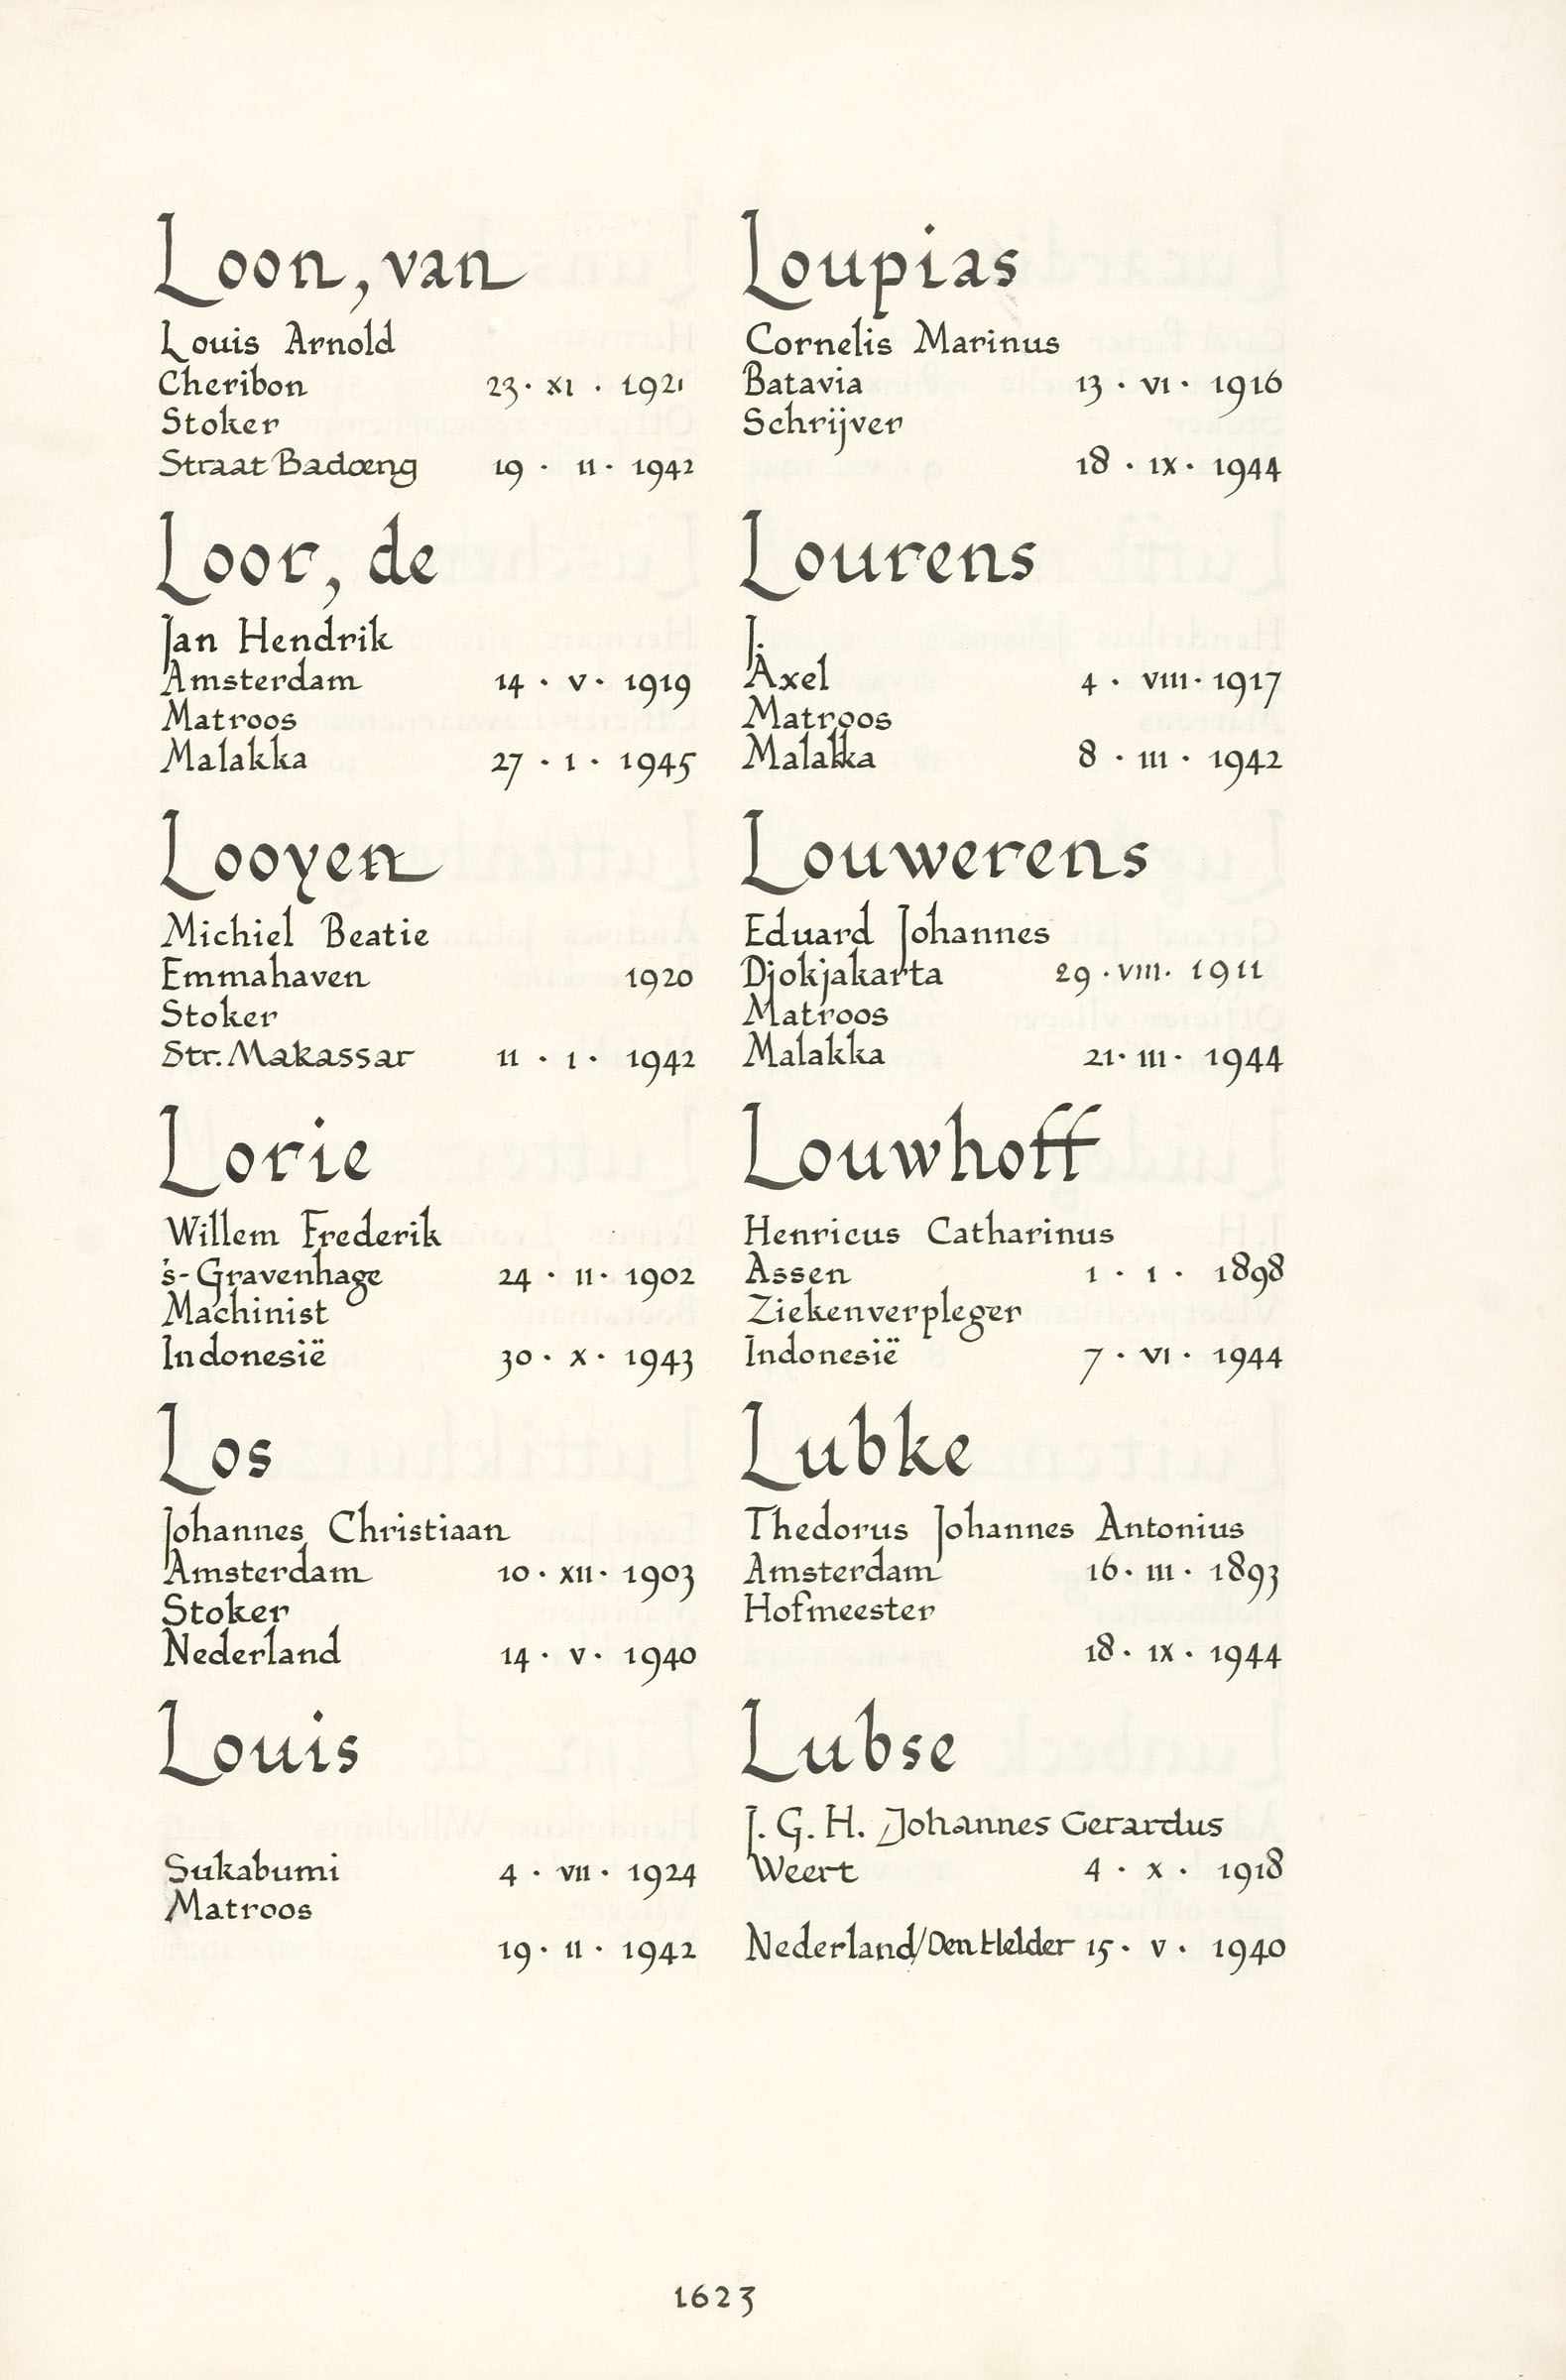 Loon, van
Louis Arnold
Cheribon 23 · XI · 1921
Stoker
Straat Badoeng 19 · II · 1942
Loor, de
Jan Hendrik
Amsterdam 14 · V · 1919
Matroos
Malakka 27 · I · 1945
Looyen
Michiel Beatie
Emmahaven 1920
Stoker
Str. Makassar 11 · I · 1942
Lorie
Willem Frederik
's-Gravenhage 24 · II · 1902
Machinist
Indonesië 30 · X · 1943
Los
Johannes Christiaan
Amsterdam 10 · XII · 1903
Stoker
Nederland 14 · V · 1940
Louis
Sukabumi 4 · VII · 1924
Matroos
19 · II · 1942
Loupias
Cornelis Marinus
Batavia 13 · VI · 1916
Schrijver
18 · IX · 1944
Lourens
J.
Axel 4 · VIII · 1917
Matroos
Malakka 8 · III · 1942
Louwerens
Eduard Johannes
Djokjakarta 29 · VIII · 1911
Matroos
Malakka 21 · III · 1944
Louwhoff
Henricus Catharinus
Assen 1 · I · 1898
Ziekenverpleger
Indonesië 7 · VI · 1944
Lubke
Thedorus Johannes Antonius
Amsterdam 16 · III · 1893
Hofmeester
18 · IX · 1944
Lubse
J. G. H. Johannes Gerardus
Weert 4 · X · 1918
Nederland/Den Helder 15 · V · 1940
1623